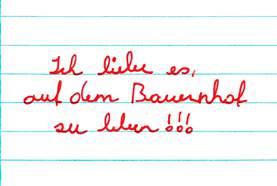 Ich liebe es,
auf dem Bauernhof
zu leben !!!